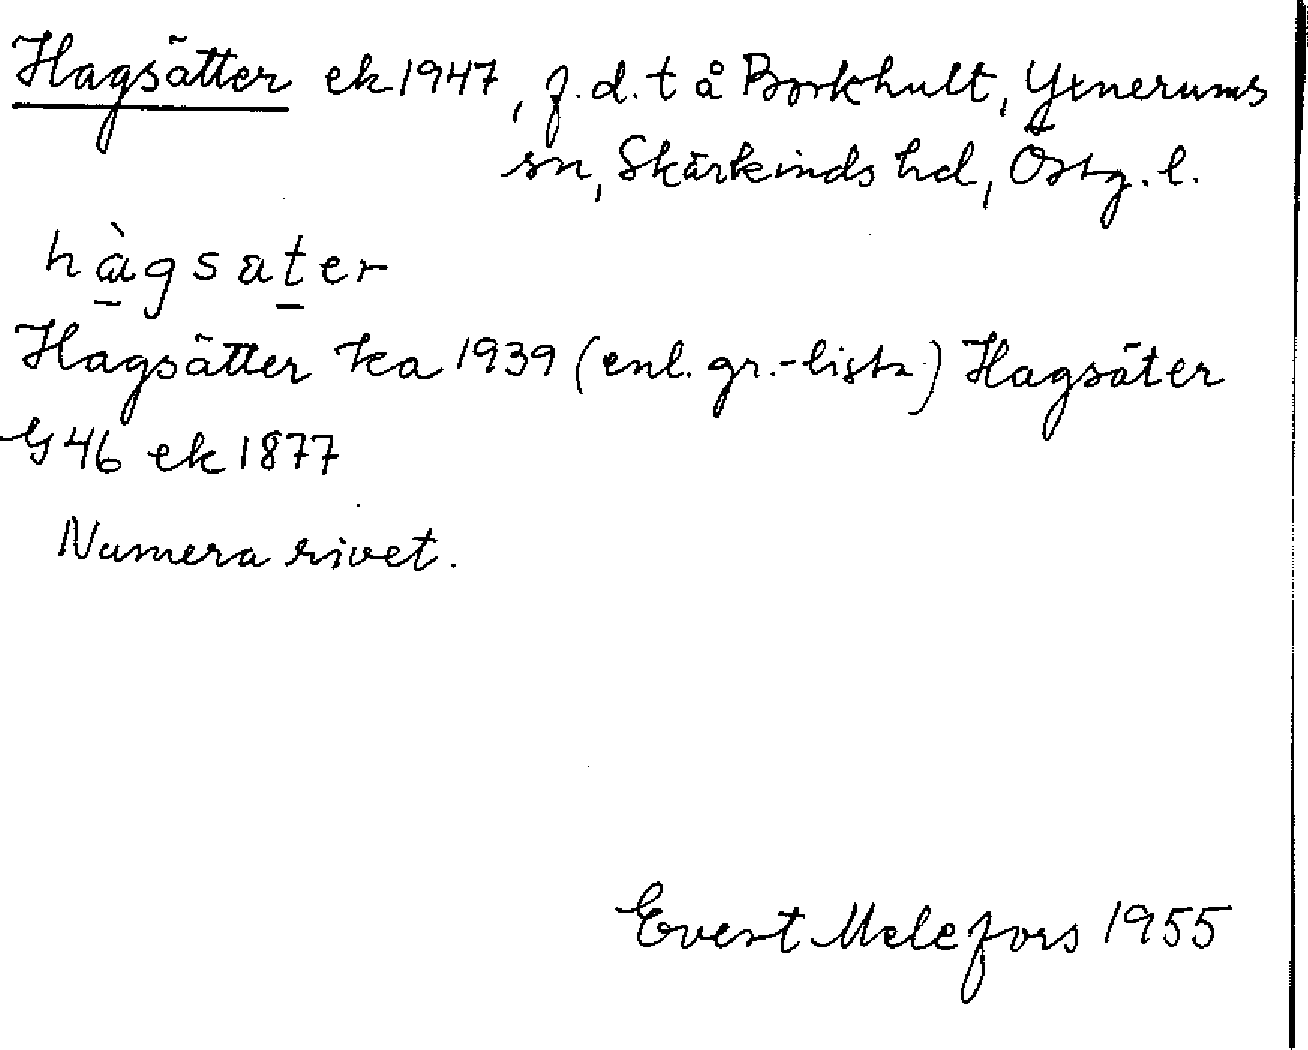 Hagsätter ek 1947, f.d. t å Borkhult, Yxnerums
sn, Skärkinds hd, Östg. l.
hàgsater
Hagsätter ka 1939 (enl. gr.-lista) Hagsäter
G 46 ek 1877
Numera rivet.
Evert Melefors 1955